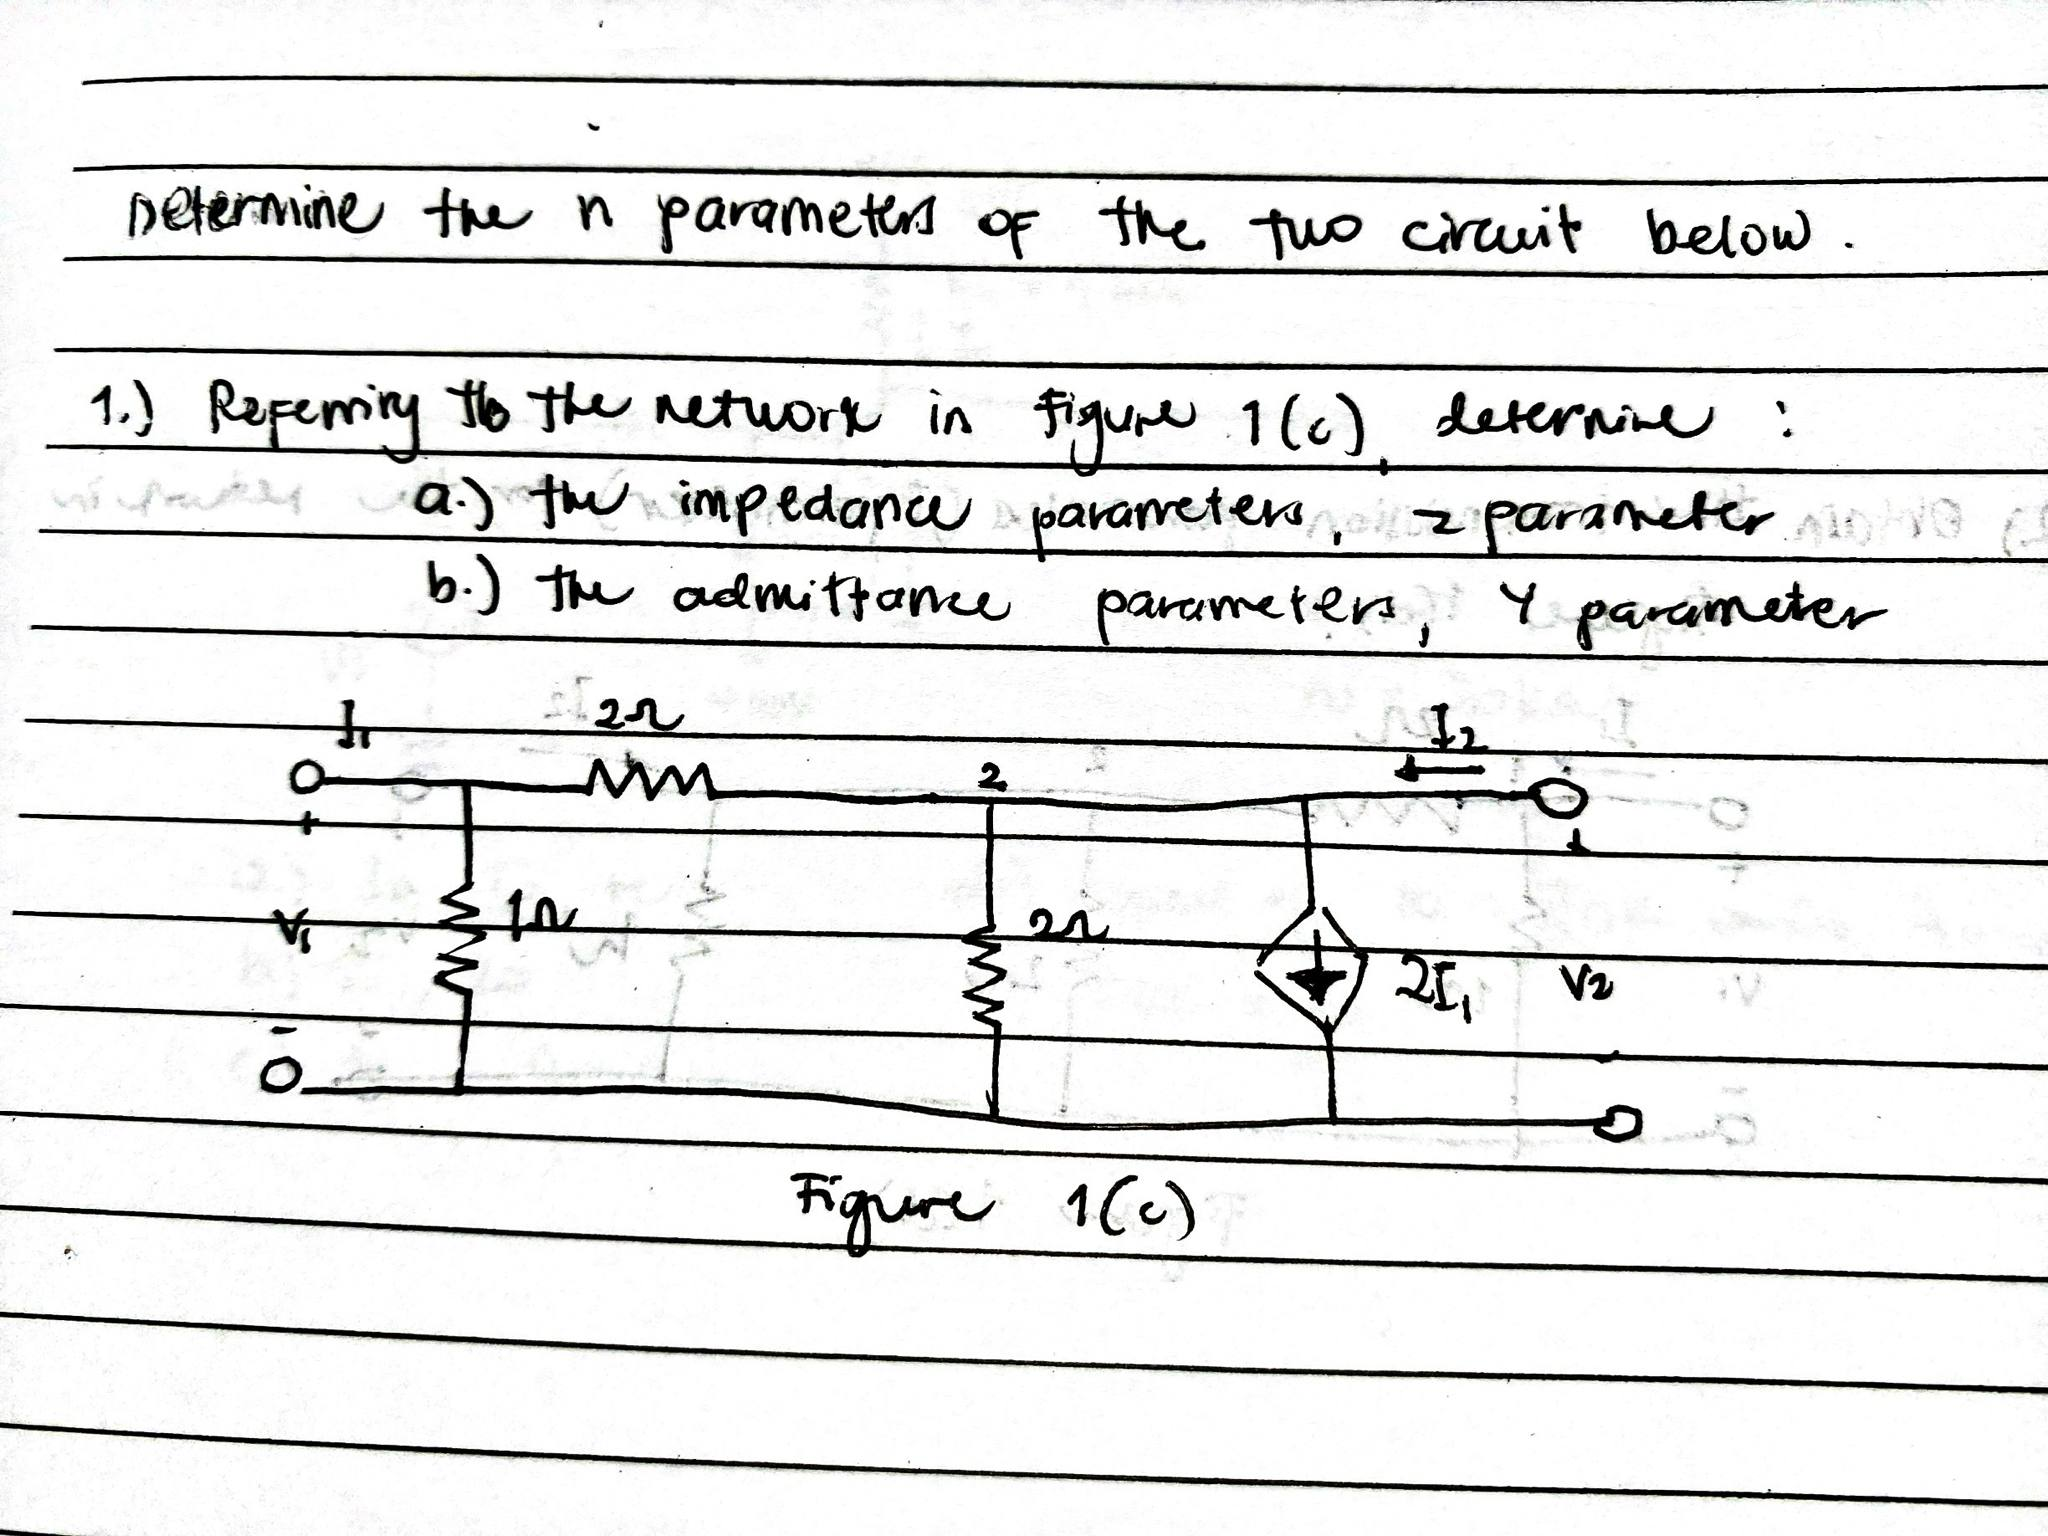 Determine the n parameters of the two circuit below.
1.) Referring to the network in Figure 1(c), determine :
a.) the impedance parameters, z parameter
b.) the admittance parameters, Y parameter
I₁ 2Ω 2 I₂
+ +
V₁ 1Ω 2Ω 2I₁ V₂
- -
Figure 1(c)